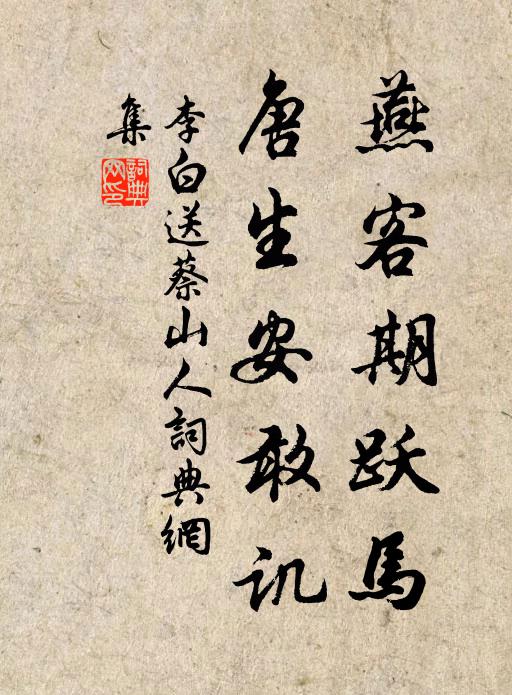 燕客期跃馬
唐生安敢讥
李白送蔡山人詞典網
集
詞典网印